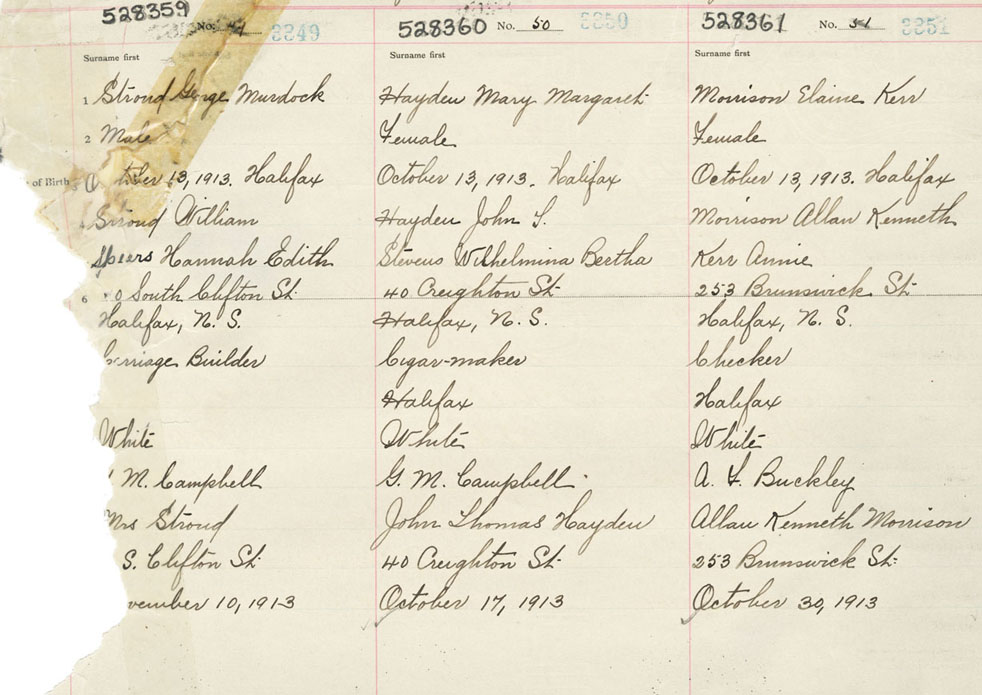 528359
No. 3349
Surname first
1 Stroud George Murdock
2 Male
of Birth
13, 1913. Halifax
Stroud William
Spears Hannah Edith
6 South Clifton St.
Halifax, N. S.
Carriage Builder
White
M. Campbell
Mrs Stroud
S. Clifton St.
vember 10, 1913
528360 No. 50 3350
Surname first
Hayden Mary Margaret
Female
October 13, 1913. Halifax
Hayden John T.
Stevens Wilhelmina Bertha
40 Creighton St.
Halifax, N. S.
Cigar-maker
Halifax
White
G. M. Campbell
John Thomas Hayden
40 Creighton St.
October 17, 1913
528361 No. 51 3351
Surname first
Morrison Elaine Kerr
Female
October 13, 1913. Halifax
Morrison Allan Kenneth
Kerr Annie
253 Brunswick St.
Halifax, N. S.
Checker
Halifax
White
Buckley
Allan Kenneth Morrison
253 Brunswick St.
October 30, 1913